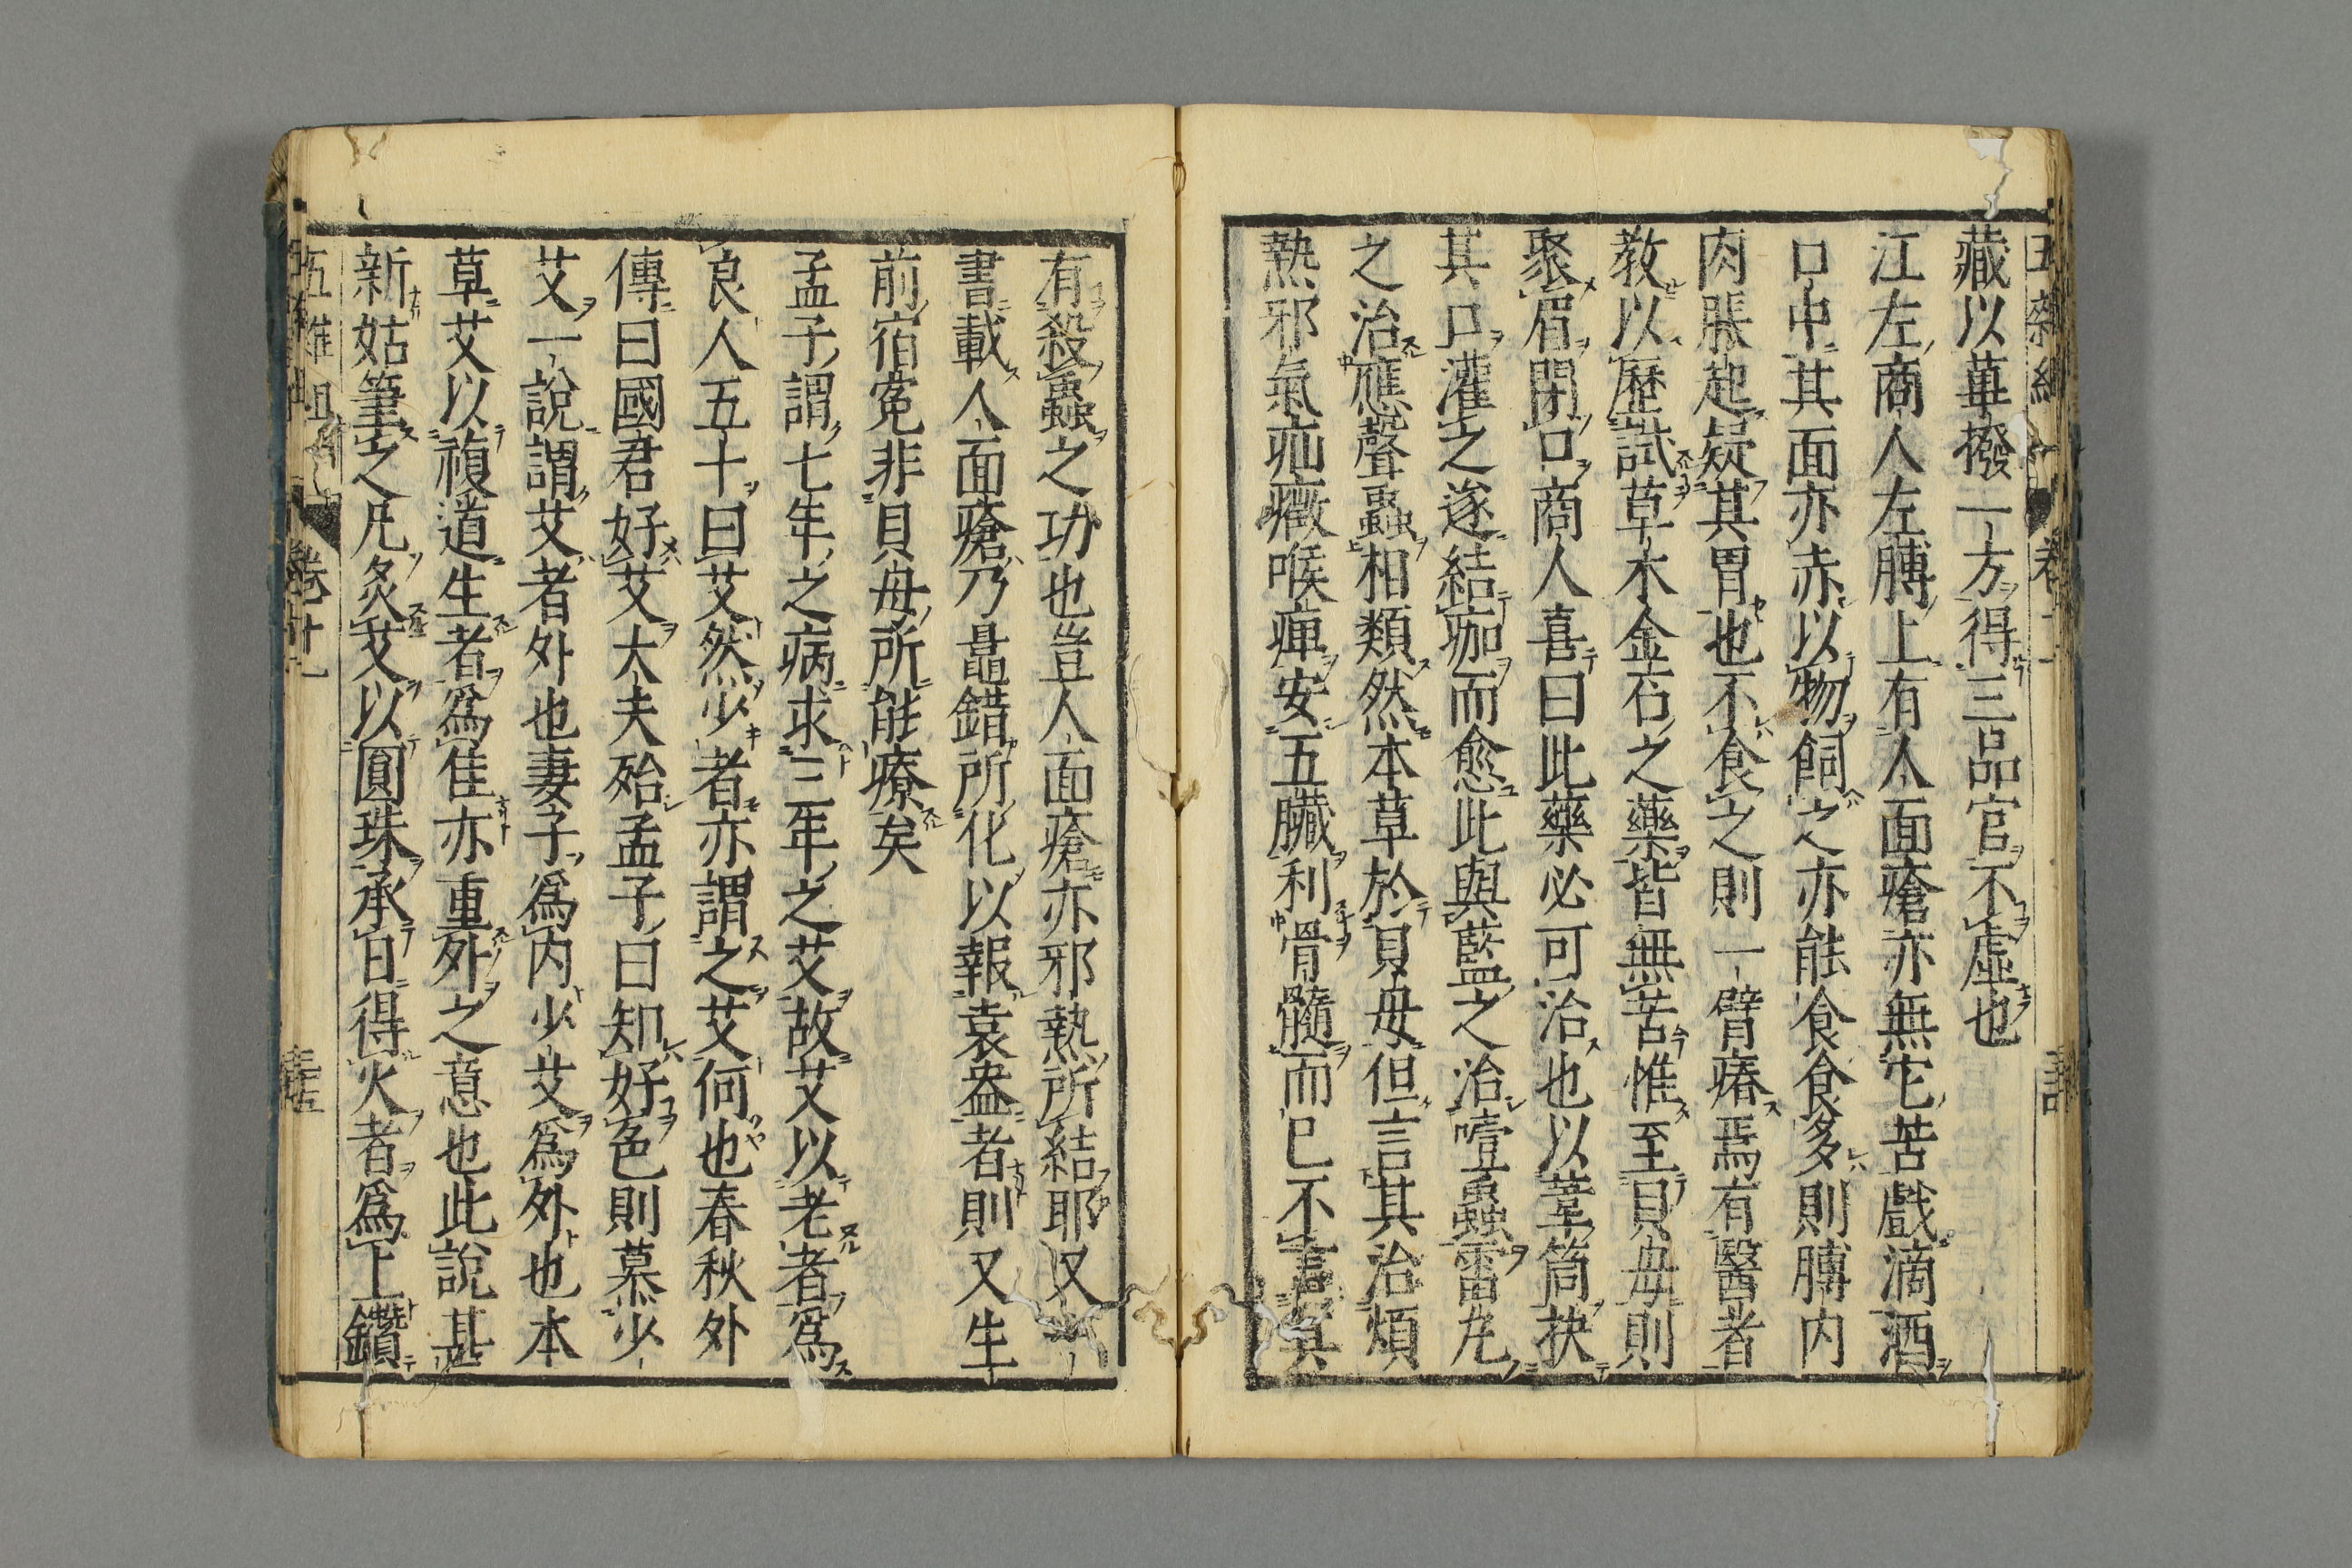 藏以蓽撥一方得三品官不虛也
江左商人左膊上有人面瘡亦無它苦戲滴酒
口中其面亦赤以物飼之亦能食食多則膊内
肉脹起疑其胃也不食之則一臂瘠焉有醫者
教以歷試草木金石之藥皆無苦惟至貝母則
聚眉閉口商人喜曰此藥必可治也以葦筒抉
其口灌之遂結痂而愈此與藍之治噎蟲雷丸
之治應聲蟲相類然本草於貝母但言其治煩
熱邪氣疝瘕喉痺安五臟利骨髓而已不言其
有殺蟲之功也豈人面瘡亦邪熱所結耶又
書載人面瘡乃鼂錯所化以報袁盎者則又生
前宿冤非貝母所能療矣
孟子謂七年之病求三年之艾故艾以老者爲
良人五十曰艾然少者亦謂之艾何也春秋外
傳曰國君好艾大夫殆孟子曰知好色則慕少
艾一說謂艾者外也妻子爲内少艾爲外也本
草艾以複道生者爲佳亦重外之意也此說甚
新姑筆之凡灸艾以圓珠承日得火者爲上鑽
五雜俎
卷十一